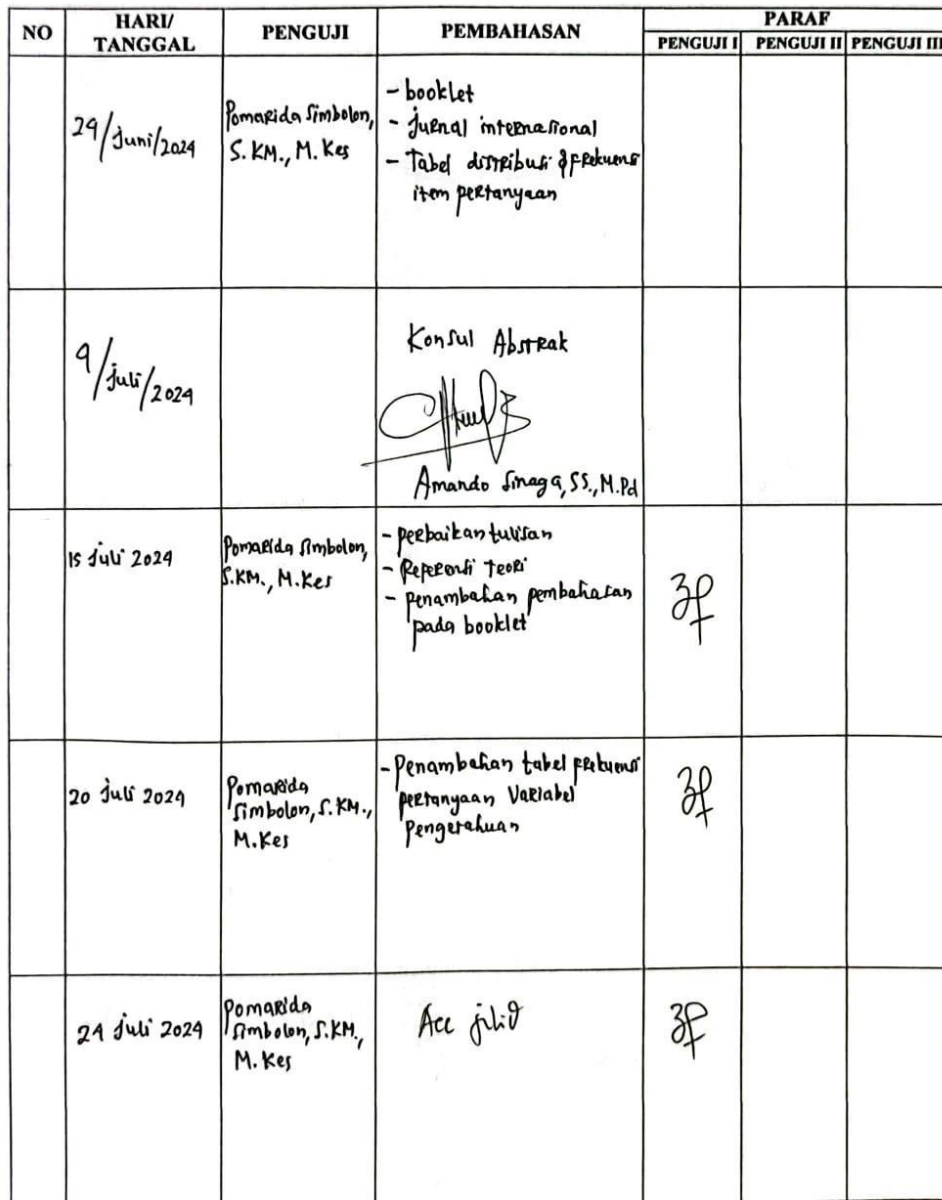 NO HARI/ TANGGAL PENGUJI PEMBAHASAN PARAF
PENGUJI I PENGUJI II PENGUJI III
29/Juni/2024
Pomarida Simbolon,
S. KM., M. Kes
- booklet
- Jurnal internasional
- Tabel distribusi & frekuensi
item pertanyaan
9/Juli/2024
Konsul Abstrak
Amando Sinaga, SS., M.Pd
15 Juli 2024
Pomarida Simbolon,
S.KM., M. Kes
- perbaikan tulisan
- Referensi Teori
- penambahan pembahasan
pada booklet
20 Juli 2024
Pomarida
Simbolon, S. KM.,
M. Kes
- Penambahan tabel frekuensi
pertanyaan Variabel
Pengetahuan
24 Juli 2024
Pomarida
Simbolon, S. KM.,
M. Kes
Acc jilid